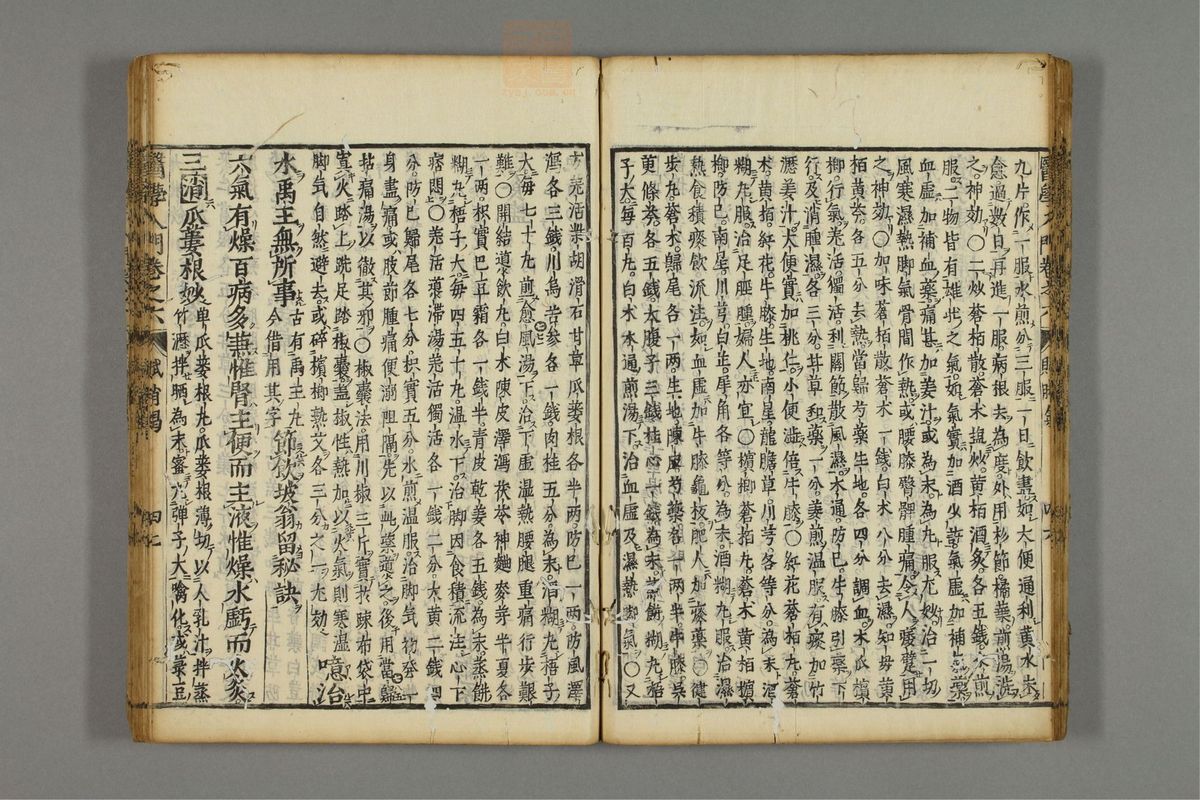 九片作一服水煎分三服一日飲盡如大便通利黃水未
愈過數日再進一服病根去為度外用杉節橘葉煎湯洗
之神効〇二妙蒼栢散蒼术黃栢酒炒各五錢水煎
服二物皆有雄壯之氣如氣實加酒少許氣虛加補氣藥
血虛加補血藥痛甚加姜汁或為末為丸服尤妙治一切
風寒濕熱脚氣骨間作熱或腰膝臀髀腫痛令人痿躄用
之神効〇加味蒼栢散蒼术一錢白术八分去濕知母黃
栢黃芩各五分去熱當歸芍藥生地各四分調血木瓜檳
榔行氣羌活獨活利關節散風濕木通防已牛膝引藥下
行及消腫濕各三分甘草和藥一分姜煎溫服有痰加竹
瀝姜汁大便實加桃仁小便澁倍牛膝〇紅花蒼栢丸蒼
术黃栢紅花牛膝生地南星龍膽草川芎各等分為末酒
糊丸服治足脛腫婦人亦宜〇檳榔蒼栢丸蒼术黃栢檳
榔防已南星川芎白芷犀角各等分為末酒糊丸服治濕
熱食積痰飲流注如血虛加牛膝龜板肥人加痰藥〇健
步丸蒼术歸尾各一兩生地陳皮芍藥各一兩半牛膝吳
萸條芩各五錢大腹子三錢桂心一錢為末蒸餅糊丸梧
子大每百丸白术木通煎湯下治血虛及濕熱脚氣〇又
方羌活柴胡滑石甘草瓜蔞根各半兩防已一兩防風澤
瀉各三錢川烏苦參各一錢肉桂五分為末酒糊丸梧子
大每七十丸煎愈風湯下治下虛濕熱腰腿重痛行步艱
難〇開結導飲丸白术陳皮澤瀉茯苓神麯麥芽半夏各
一兩枳實巴豆霜各一錢半青皮乾姜各五錢為末蒸餅
糊丸梧子大每四五十丸溫水下治脚因食積流注心下
痞悶〇羌活導滯湯羌活獨活各一錢二分大黃二錢四
分防已歸尾各七分枳實五分水煎溫服治脚气初發一
身盡痛或肢節腫痛便溺阻隔先以此藥導之後用當歸
拈痛湯以徹其邪〇椒囊法用川椒三斤實於疎布袋中
置火踏上跣足踏椒囊盖椒性熱加以火氣則寒濕
脚气自然避去或碎檳榔熟艾各三分之一尤効 意治
水禹王無所事古有禹王丸今借用其字節飲坡翁留秘訣
六氣有燥百病多兼惟腎主便而主液惟燥水虧而火炎
三消瓜蔞根炒
醫學入門卷之六
四七